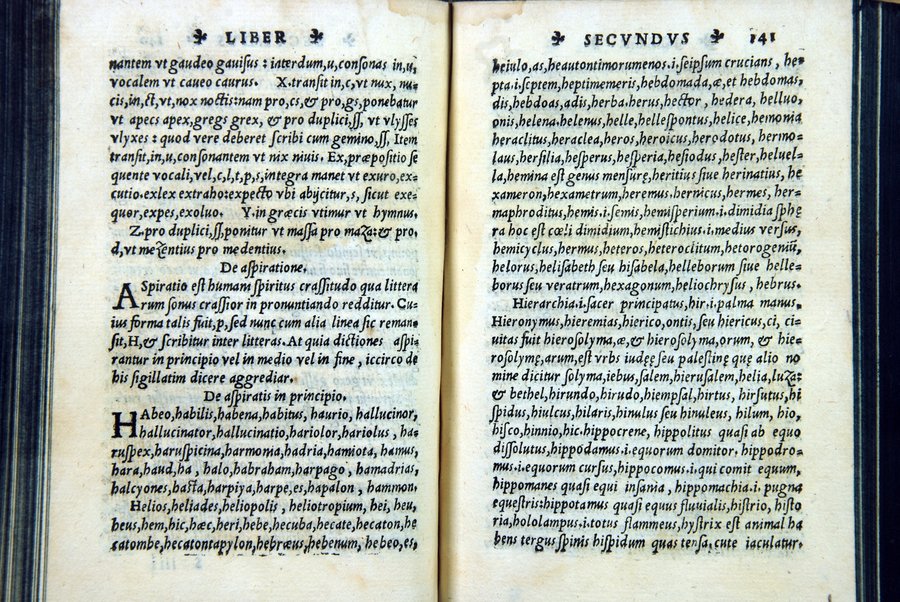 LIBER
nantem vt gaudeo gauisus : interdum,u,consonas in,u,
vocalem vt caueo caurus. X.transit in,c,vt nux, nu=
cis,in,ct,vt,nox noctis:nam pro,cs,& pro,gs,ponebatur
vt apecs apex,gregs grex, & pro duplici,ss, vt vlysses
vlyxes : quod vere deberet scribi cum gemino,ss, Item
transit,in,u,consonantem vt nix niuis. Ex,præpositio se
quente vocali,vel,c,l,t,p,s,integra manet vt exuro,ex=
cutio.exlex extraho:expecto vbi abijcitur,s, sicut exe=
quor,expes,exoluo. Y.in græcis vtimur vt hymnus.
Z.pro duplici,ss,ponitur vt massa pro maza:& pro,
d,vt mezentius pro medentius.
De aspiratione.
ASpiratio est humani spiritus crassitudo qua littera
rum sonus crassior in pronuntiando redditur. Cu=
ius forma talis fuit,p,sed nunc cum alia linea sic reman=
sit,H,& scribitur inter litteras. At quia dictiones aspi=
rantur in principio vel in medio vel in fine , iccirco de
his sigillatim dicere aggrediar.
De aspiratis in principio.
HAbeo,habilis,habena,habitus, haurio, hallucinor,
hallucinator,hallucinatio,hariolor,hariolus , ha=
ruspex,haruspicina,harmonia,hadria,hamiota, hamus,
hara,haud,ha , halo,habraham,harpago , hamadrias,
halcyones,hasta,harpiya,harpe,es,hapalon , hammon.
Helios,heliades,heliopolis , heliotropium, hei, heu,
heus,hem,hic,hæc,heri,hebe,hecuba,hecate,hecaton,he
catombe,hecatontapylon,hebræus,hebenum, hebeo,es,
SECVNDVS 141
heiulo,as,heautontimorumenos.i.seipsum crucians , he=
pta.i.septem,heptimemeris,hebdomada,æ,et hebdomas,
dis,hebdoas,adis,herba.herus,hector , hedera, helluo,
onis,helena.helenus,helle,hellespontus,helice,hemonia
heraclitus,heraclea,heros,heroicus,herodotus, hermo=
laus,hersilia,hesperus,hesperia,hesiodus,hester,heluel=
la,hemina est genus mensuræ,heritius siue herinatius, he
xameron,hexametrum,heremus.hernicus,hermes, her=
maphroditus,hemis.i.semis,hemisperium.i.dimidia sphę
ra hoc est cœli dimidium,hemistichius.i.medius versus,
hemicyclus,hermus,heteros,heteroclitum,hetorogeniũ,
helorus,helisabeth seu hisabela,helleborum siue helle=
borus seu veratrum,hexagonum,heliochrysus , hebrus.
Hierarchia.i.sacer principatus,hir.i.palma manus.
Hieronymus,hieremias,hierico,ontis,seu hiericus,ci, ci=
uitas fuit hierosolyma,æ,& hierosolyma,orum, & hie=
rosolymę,arum,est vrbs iudęę seu palestinę quę alio no
mine dicitur solyma,iebus,salem,hierusalem,helia,luza:
& bethel,hirundo,hirudo,hiempsal,hirtus, hirsutus,hi
spidus,hiulcus,hilaris,hinulus seu hinuleus, hilum, hio,
hisco,hinnio,hic.hippocrene, hippolitus quasi ab equo
dissolutus,hippodamus.i.equorum domitor. hippodro=
mus.i.equorum cursus,hippocomus.i.qui comit equum,
hippomanes quasi equi insania, hippomachia.i. pugna
equestris:hippotamus quasi equus fluuialis,histrio, histo
ria,hololampus.i.totus flammeus,hystrix est animal ha
bens tergus spinis hispidum quas tensa.cute iaculatur.